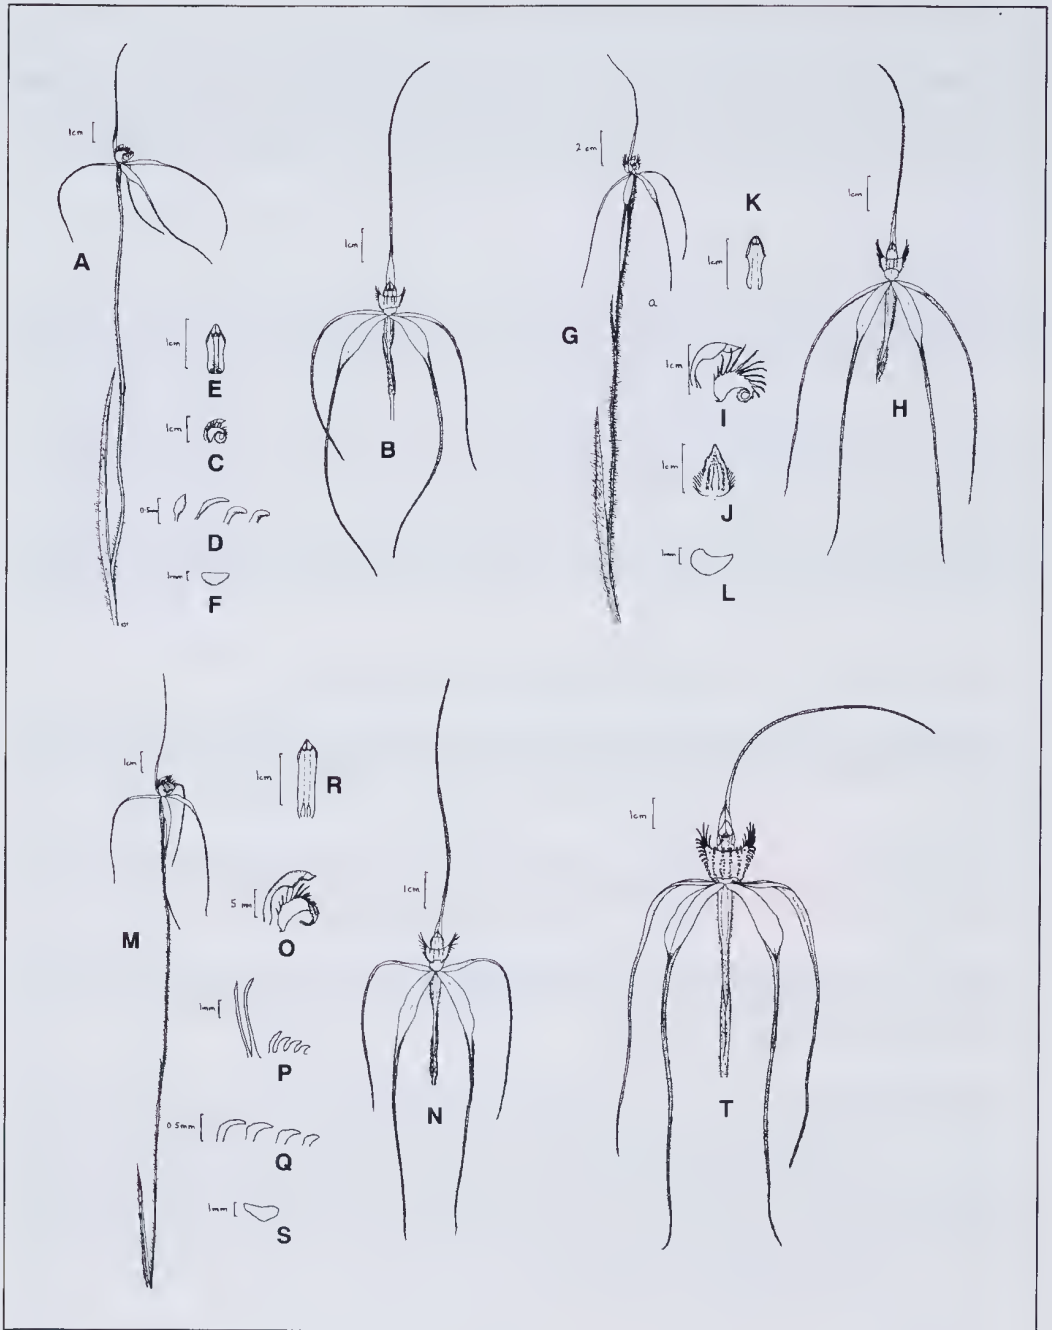 1cm
A
1cm
B
1cm
E
1cm
C
0·5mm
D
1mm
F
2 cm
G
a
K
1cm
1cm
H
1cm
I
1cm
J
1mm
L
1cm
M
1cm
R
5 mm
O
1mm
P
0·5mm
Q
1mm
S
1cm
N
1cm
T